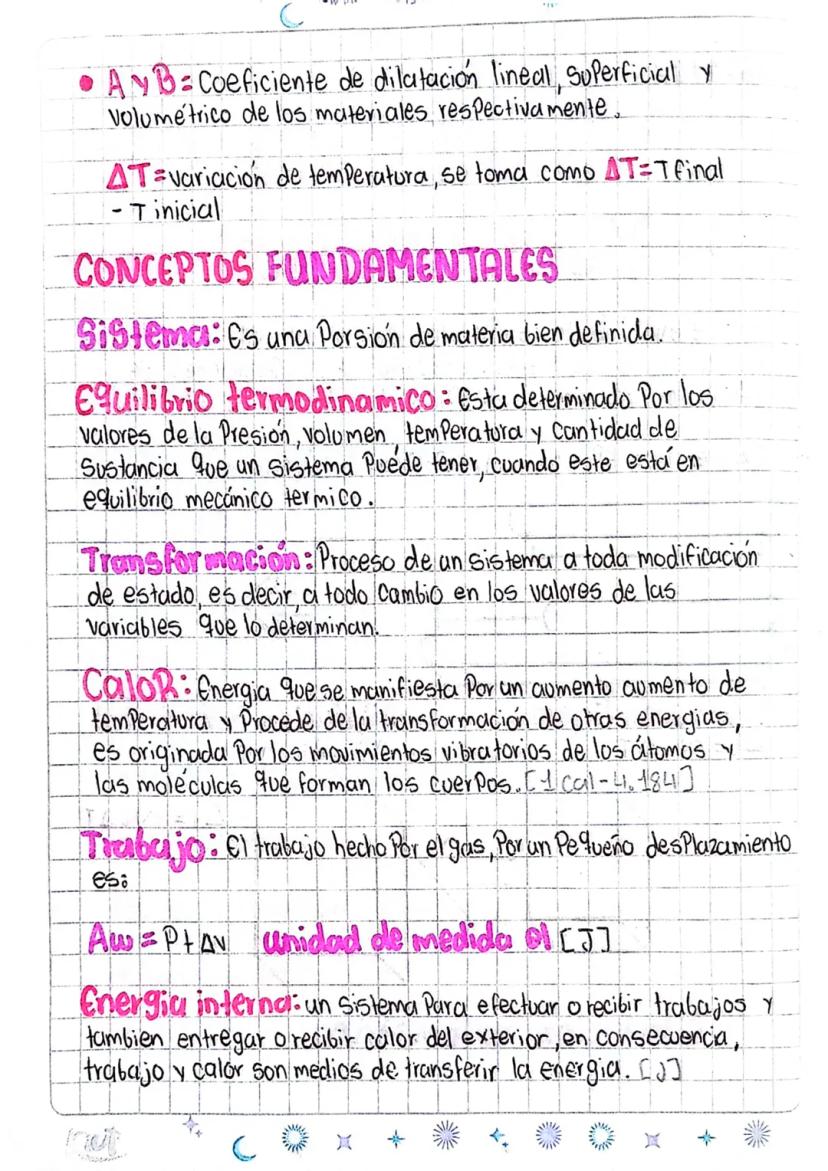 • A y B = Coeficiente de dilatación lineal, superficial y
volumétrico de los materiales respectivamente.
ΔT = variación de temperatura, se toma como ΔT = T final
- T inicial
CONCEPTOS FUNDAMENTALES
Sistema: Es una Porsión de materia bien definida.
Equilibrio termodinamico: Esta determinado Por los
valores de la Presión, volumen, temperatura y cantidad de
sustancia que un sistema Puede tener, cuando este está en
equilibrio mecánico termico.
Transformación: Proceso de un sistema a toda modificación
de estado, es decir, a todo cambio en los valores de las
variables que lo determinan.
Calor: Energia que se manifiesta Por un aumento aumento de
temperatura y Procede de la transformación de otras energias,
es originada Por los movimientos vibratorios de los átomos y
las moléculas que forman los cuerpos. [1 cal - 4.184]
Trabajo: El trabajo hecho Por el gas, Por un Pequeño desplazamiento
es:
Aw = P + Δv unidad de medida el [J]
Energia interna: un sistema Para efectuar o recibir trabajos y
tambien entregar o recibir calor del exterior, en consecuencia,
trabajo y calor son medios de transferir la energia. [J]